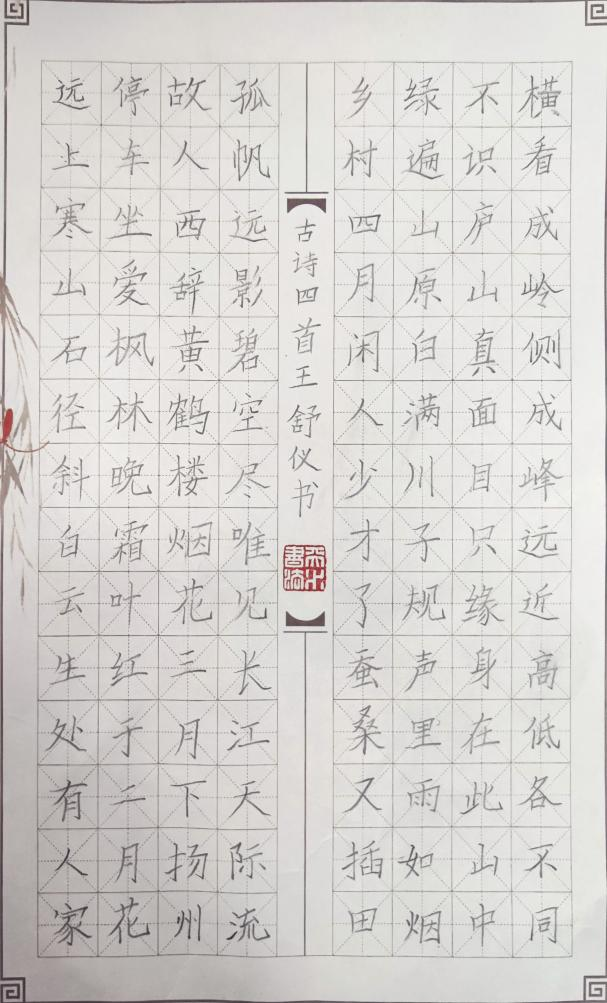 横看成岭侧成峰远近高低各不同
不识庐山真面目只缘身在此山中
绿遍山原白满川子规声里雨如烟
乡村四月闲人少才了蚕桑又插田
古诗四首王舒仪书
孤帆远影碧空尽唯见长江天际流
故人西辞黄鹤楼烟花三月下扬州
停车坐爱枫林晚霜叶红于二月花
远上寒山石径斜白云生处有人家